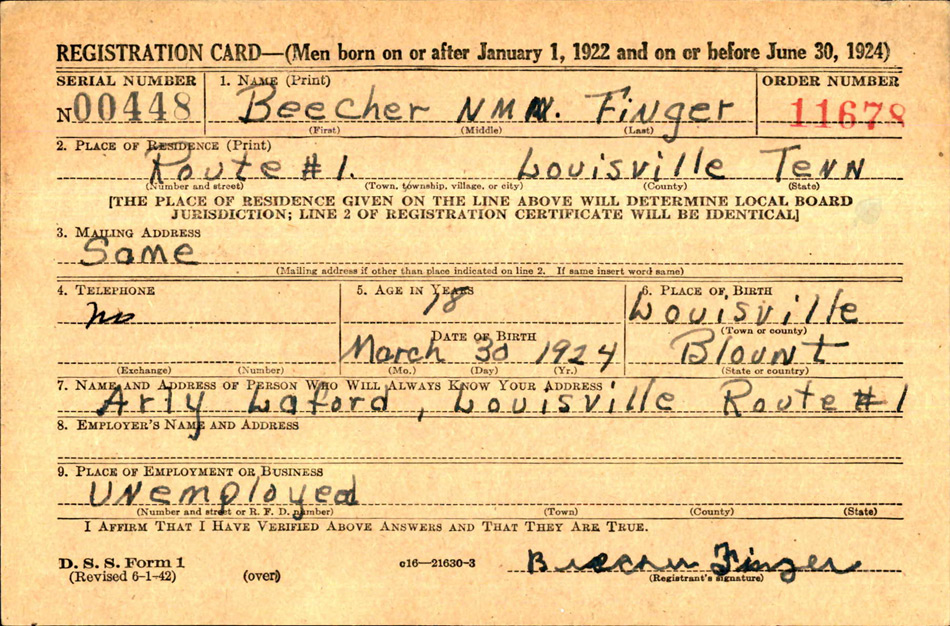 REGISTRATION CARD—(Men born on or after January 1, 1922 and on or before June 30, 1924)
SERIAL NUMBER 1. NAME (Print) ORDER NUMBER
N00448 Beecher NMN. Finger 11678
(First) (Middle) (Last)
2. PLACE OF RESIDENCE (Print)
Route #1. Louisville Tenn
(Number and street) (Town, township, village, or city) (County) (State)
[THE PLACE OF RESIDENCE GIVEN ON THE LINE ABOVE WILL DETERMINE LOCAL BOARD
JURISDICTION; LINE 2 OF REGISTRATION CERTIFICATE WILL BE IDENTICAL]
3. MAILING ADDRESS
Same
(Mailing address if other than place indicated on line 2. If same insert word same)
4. TELEPHONE 5. AGE IN YEARS 6. PLACE OF BIRTH
no 18 Louisville
(Town or county)
DATE OF BIRTH
March 30 1924 Blount
(Exchange) (Number) (Mo.) (Day) (Yr.) (State or country)
7. NAME AND ADDRESS OF PERSON WHO WILL ALWAYS KNOW YOUR ADDRESS
Arly Laford, Louisville Route #1
8. EMPLOYER'S NAME AND ADDRESS
9. PLACE OF EMPLOYMENT OR BUSINESS
Unemployed
(Number and street or R. F. D. number) (Town) (County) (State)
I AFFIRM THAT I HAVE VERIFIED ABOVE ANSWERS AND THAT THEY ARE TRUE.
D. S. S. Form 1 c16—21630-3 Beecher Finger
(Revised 6-1-42) (over) (Registrant's signature)